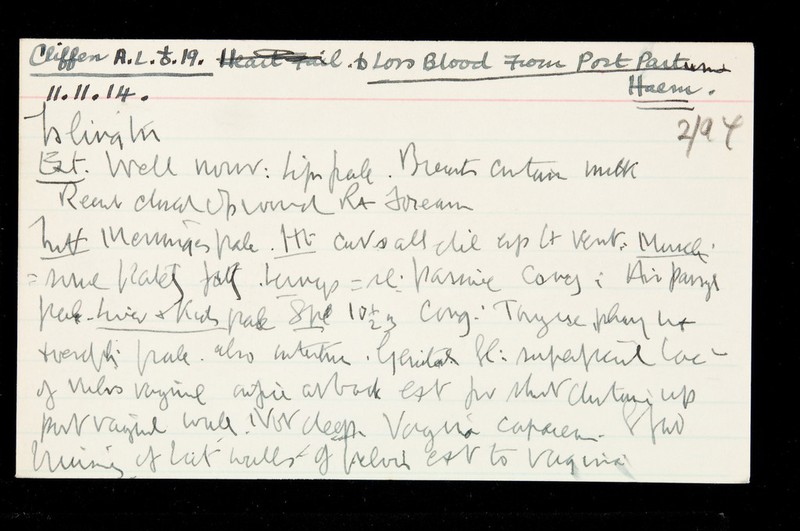 Cliffen A.L. 19. Heart Fail. Loss Blood From Post Partum
Haem.
11.11.14.
Islington
2/94
Ext. Well nour: Lips pale. Breasts contain milk
Recent closed Op wound Rt Forearm
Int Meninges pale. Ht cavs all dil esp Lt vent: Muscle
= some patchy fatty. Lungs = sl: passive cong: Air passgs
pale. Liver & Kids pale Spl 10½ cong: Tongue phary
pale. also intestine. Genitals Sl: superficial lac
of vagina at back ext for short distance up
post vaginal wall. Not deep. Vagina
Bruising of lat walls of pelvis ext to vagina